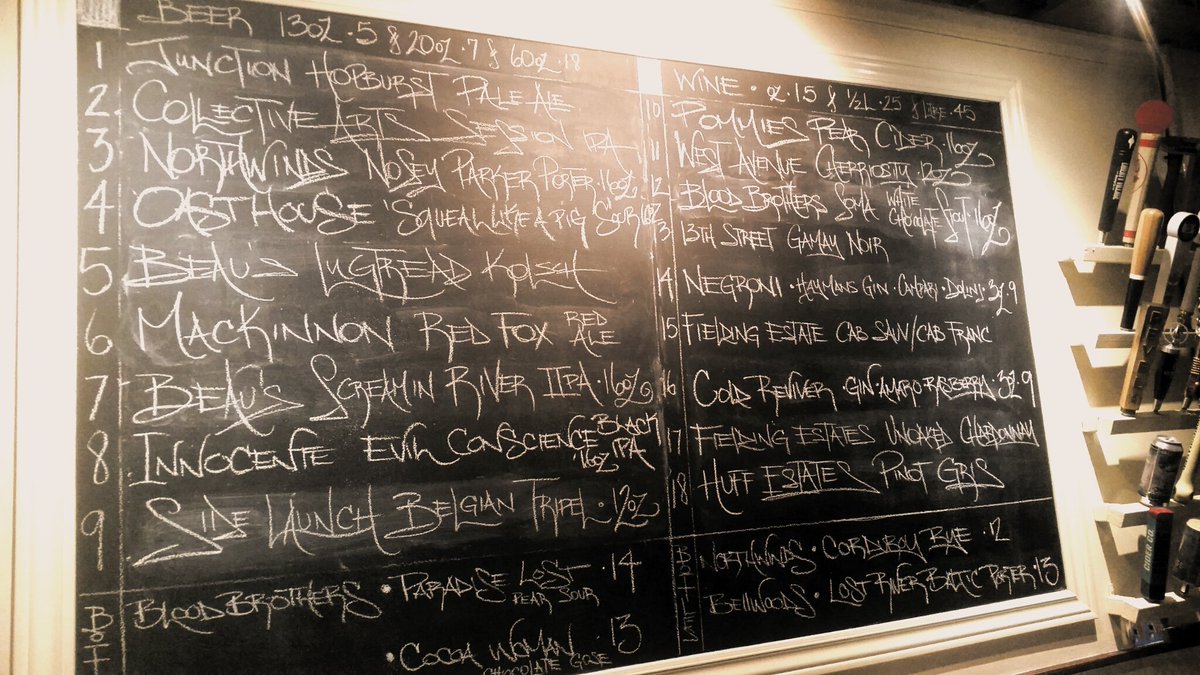 BEER 13OZ · 5 § 20OZ · 7 § 60OZ · 18
1 JUNCTION HOPBURST PALE ALE
2 COLLECTIVE ARTS SESSION IPA
3 NORTHWINDS NOSEY PARKER PORTER · 16OZ
4 OAST HOUSE 'SQUEAL LIKE A PIG' SOUR 16OZ
5 BEAU'S LUGTREAD KOLSCH
6 MACKINNON RED FOX RED ALE
7 BEAU'S SCREAMIN RIVER IIPA · 16OZ
8 INNOCENTE EVIL CONSCIENCE BLACK IPA 16OZ
9 SIDE LAUNCH BELGIAN TRIPEL · 12OZ
BOT
BLOOD BROTHERS · PARADISE LOST · 14
PEAR SOUR
· COCOA WOMAN · 13
CHOCOLATE GOSE
WINE · 15 § ½L · 25 § LITRE · 45
10 POMMIES PEAR CIDER · 16OZ
11 WEST AVENUE CHERRIOSITY · 12OZ
12 BLOOD BROTHERS SOMA WHITE CHOCOLATE STOUT · 16OZ
13 13TH STREET GAMAY NOIR
14 NEGRONI · HAYMANS GIN · CAMPARI · DOLIN · 3OZ · 9
15 FIELDING ESTATE CAB SAUV/CAB FRANC
16 COLD REVIVER · GIN · AMARO · RASBERRY · 3OZ · 9
17 FIELDING ESTATES UNOAKED CHARDONNAY
18 HUFF ESTATES PINOT GRIS
BOTTLES
NORTHWINDS · CORDUROY RYE · 12
BELLWOODS · LOST RIVER BALTIC PORTER · 13